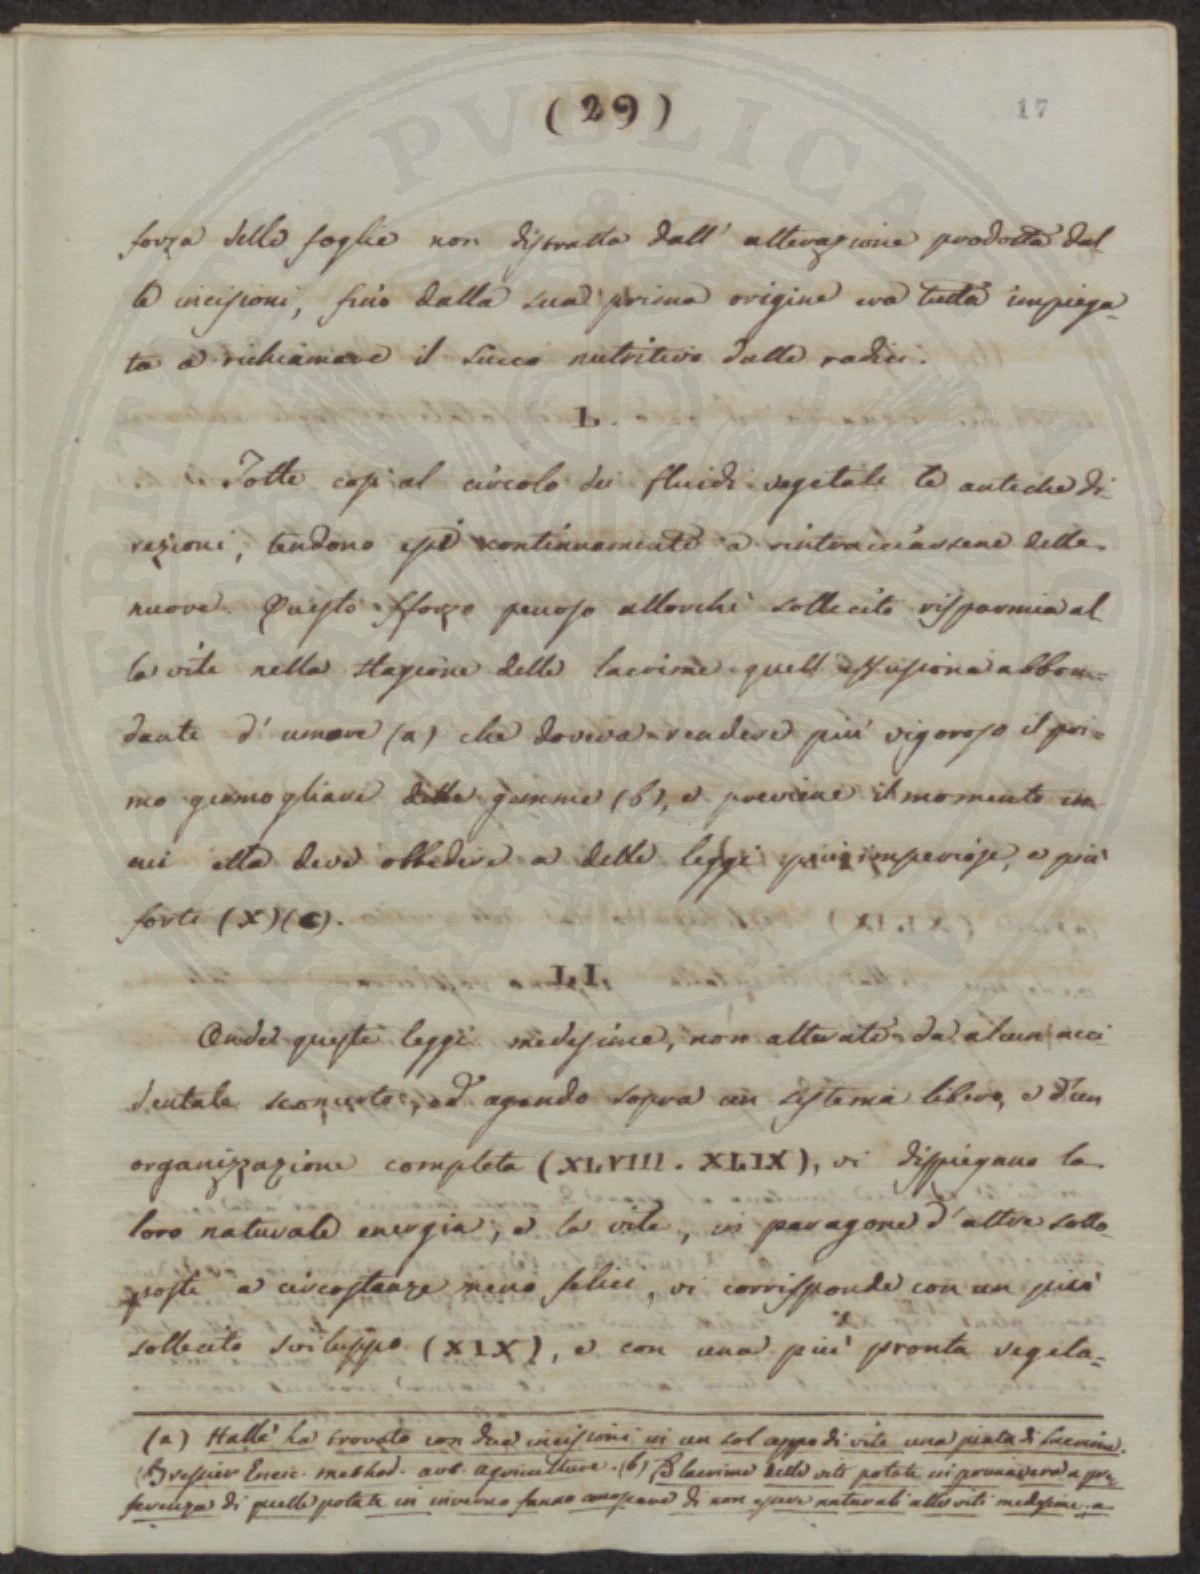 (29)
17
forza delle foglie non distratta dall' alterazione prodotta dal-
le incisioni, fino dalla sua prima origine era tutta impiega-
ta a richiamare il succo nutritivo dalle radici.
L.
Tolte così al circolo dei fluidi vegetali le antiche di-
rezioni, tendono essi continuamente a rintracciarsene delle
nuove. Questo sforzo penoso allorchè sollecito risparmia al
la vite nella stagione delle lacrime quell' effusione abbon-
dante d' umore (a) che doveva rendere più vigoroso il pri-
mo germogliare delle gemme (b), e previene il momento in
cui ella deve obbedire a delle leggi più imperiose, e più
forti (X)(c).
LI.
Onde queste leggi medesime, non alterate da alcun acci
dentale sconcerto, ed agendo sopra un sistema libero, e d'un
organizzazione completa (XLVIII. XLIX), vi dispiegano la
loro naturale energia, e la vite, in paragone d' altre sotto-
poste a circostanze meno felici, vi corrisponde con un più
sollecito sviluppo (XIX), e con una più pronta vegeta-
(a) Hallè ha trovato con due incisioni in un sol ceppo di vite una pinta di lacrime.
Encic. method. art. agriculture. (b) Le lacrime delle viti potate in primavera a pre-
ferenza di quelle potate in inverno fanno conoscere di non essere naturali alle viti medesime. a